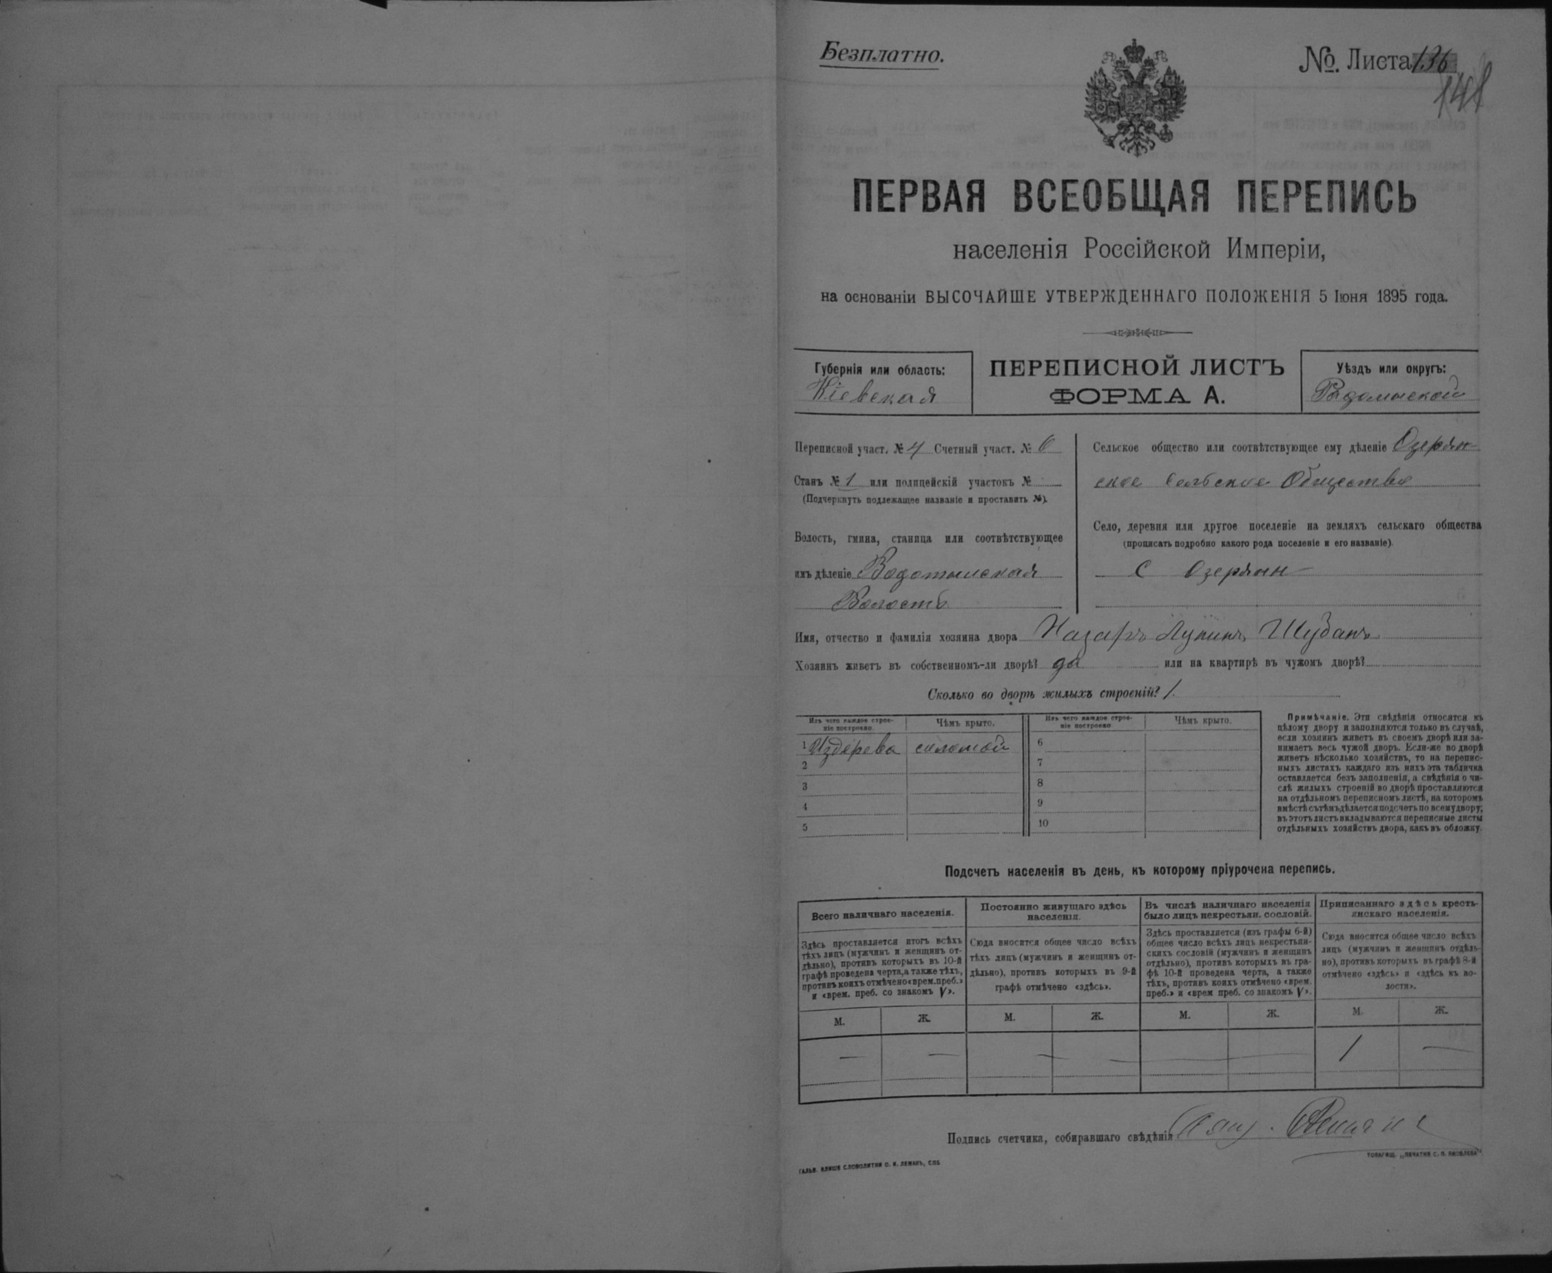 Безплатно.
№. Листа 136
141
ПЕРВАЯ ВСЕОБЩАЯ ПЕРЕПИСЬ
населенія Россійской Имперіи,
на основаніи ВЫСОЧАЙШЕ УТВЕРЖДЕННАГО ПОЛОЖЕНІЯ 5 Іюня 1895 года.
Губернія или область:
Кіевская
ПЕРЕПИСНОЙ ЛИСТЪ
ФОРМА А.
Уѣздъ или округъ:
Радомыской
Переписной участ. № 4 Счетный участ. № 6
Станъ № 1 или полицейскій участокъ №
(Подчеркнуть подлежащее названіе и проставить №).
Волость, гмина, станица или соотвѣтствующее
ихъ дѣленіе Водотыиская
Волость
Сельское общество или соотвѣтствующее ему дѣленіе Озерян-
ское сельское Общество
Село, деревня или другое поселеніе на земляхъ сельскаго общества
(прописать подробно какого рода поселеніе и его названіе).
С Озеряни
Имя, отчество и фамилія хозяина двора Назаръ Шубанъ
Хозяинъ живетъ въ собственномъ-ли дворѣ? да или на квартирѣ въ чужомъ дворѣ?
Сколько во дворѣ жилыхъ строеній? 1
Изъ чего каждое строе-
ніе построено.
Чѣмъ крыто.
1 Издерева соломой
2
3
4
5
Изъ чего каждое строе-
ніе построено.
Чѣмъ крыто.
6
7
8
9
10
Примѣчаніе. Эти свѣдѣнія относятся къ
цѣлому двору и заполняются только въ случаѣ,
если хозяинъ живетъ въ своемъ дворѣ или за-
нимаетъ весь чужой дворъ. Если-же во дворѣ
живетъ нѣсколько хозяйствъ, то на перепис-
ныхъ листахъ каждаго изъ нихъ эта табличка
оставляется безъ заполненія, а свѣдѣнія о чи-
слѣ жилыхъ строеній во дворѣ проставляются
на отдѣльномъ переписномъ листѣ, на которомъ
вмѣстѣ съ тѣмъ дѣлается подсчетъ по всему двору;
въ этотъ листъ вкладываются переписные листы
отдѣльныхъ хозяйствъ двора, какъ въ обложку.
Подсчетъ населенія въ день, къ которому пріурочена перепись.
Всего наличнаго населенія.
Здѣсь проставляется итогъ всѣхъ
тѣхъ лицъ (мужчинъ и женщинъ от-
дѣльно), противъ которыхъ въ 10-й
графѣ проведена черта, а также тѣхъ,
противъ коихъ отмѣчено «врем. преб.»
и «врем. преб. со знакомъ V».
М. Ж.
— —
Постоянно живущаго здѣсь
населенія.
Сюда вносится общее число всѣхъ
тѣхъ лицъ (мужчинъ и женщинъ от-
дѣльно), противъ которыхъ въ 9-й
графѣ отмѣчено «здѣсь».
М. Ж.
— —
Въ числѣ наличнаго населенія
было лицъ некрестьян. сословій.
Здѣсь проставляется (изъ графы 6-й)
общее число всѣхъ лицъ некрестьян-
скихъ сословій (мужчинъ и женщинъ
отдѣльно), противъ которыхъ въ гра-
фѣ 10-й проведена черта, а также
тѣхъ, противъ коихъ отмѣчено «врем.
преб.» и «врем преб. со знакомъ V».
М. Ж.
Приписаннаго здѣсь кресть-
янскаго населенія.
Сюда вносится общее число всѣхъ
лицъ (мужчинъ и женщинъ отдѣль-
но), противъ которыхъ въ графѣ 8-й
отмѣчено «здѣсь» и «здѣсь въ во-
лости».
М. Ж.
1 —
Подпись счетчика, собиравшаго свѣдѣнія
ГАЛЬВ. КЛИШЕ СЛОВОЛИТНИ О. И. ЛЕМАНЪ, СПБ.